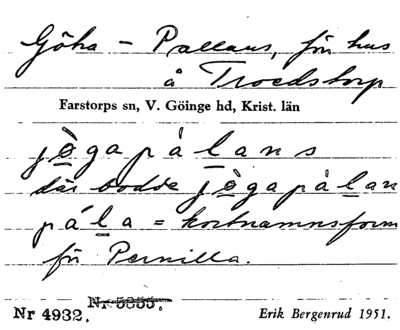 Göha - Pallans, förr hus
å Troedstorp
Farstorps sn, V. Göinge hd, Krist. län
jògapálans
där bodde jògapálan
pála = kortnamnsform
för Pernilla.
Nr 5355.
Nr 4932.
Erik Bergenrud 1951.